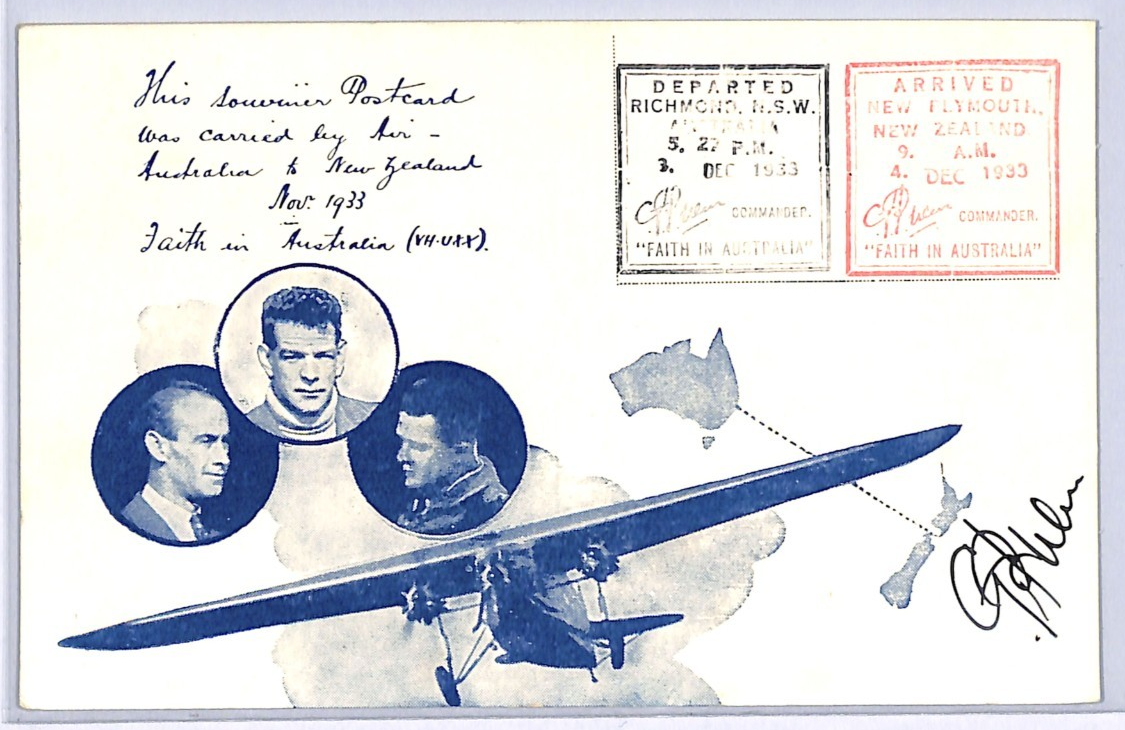 This souvenier Postcard
was carried by Air -
Australia to New Zealand
Nov. 1933
Faith in Australia (VH.UXX).
DEPARTED
RICHMOND, N.S.W.
AUSTRALIA
5. 27 P.M.
3. DEC 1933
COMMANDER.
"FAITH IN AUSTRALIA"
ARRIVED
NEW PLYMOUTH,
NEW ZEALAND
9. A.M.
4. DEC 1933
COMMANDER.
"FAITH IN AUSTRALIA"